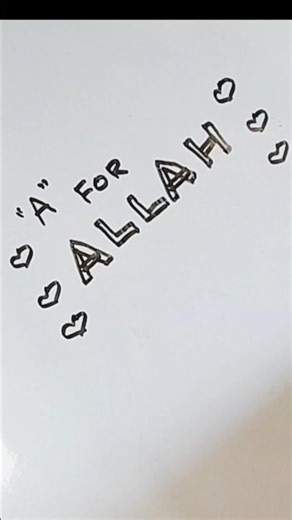 "A" FOR
ALLAH